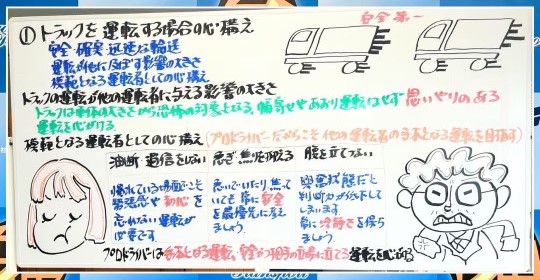 ①トラックを運転する場合の心構え
安全第一
安全・確実・迅速な輸送
運転が他に及ぼす影響の大きさ
模範となる運転者としての心構え
トラックの運転が他の運転者に与える影響の大きさ
トラックは車体の大きさから恐怖の対象となる、幅寄せやあおり運転はせず思いやりのある
運転を心がける
模範となる運転者としての心構え(プロドライバーだからこそ他の運転者の手本となる運転を目指す)
油断・過信をしない
慣れている場面こそ
緊張感や初心を
忘れない運転が
必要です
急ぎ・焦りを抑える
急いでいたり焦って
いても常に安全
を最優先に考え
ましょう
腹を立てない
興奮状態だと
判断力が低下して
しまいます
常に冷静さを保ち
ましょう
プロドライバーは手本となる運転、安全が
立場に立てる運転を心がける